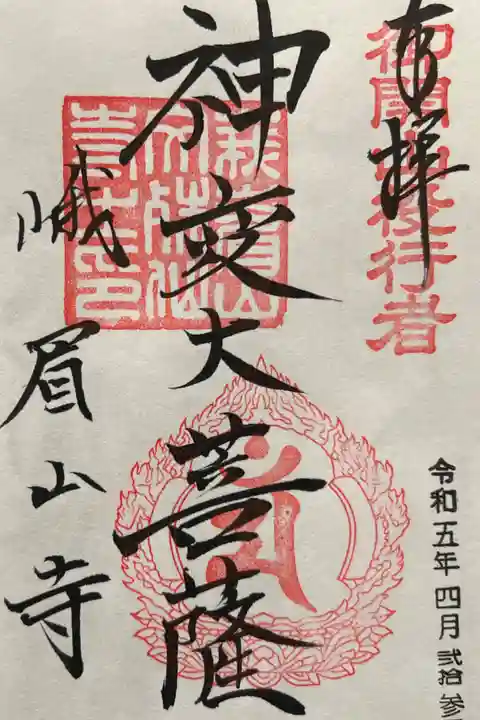 奉拝
御開山役行者
令和五年四月弐拾参
神変大菩薩
峨眉山寺